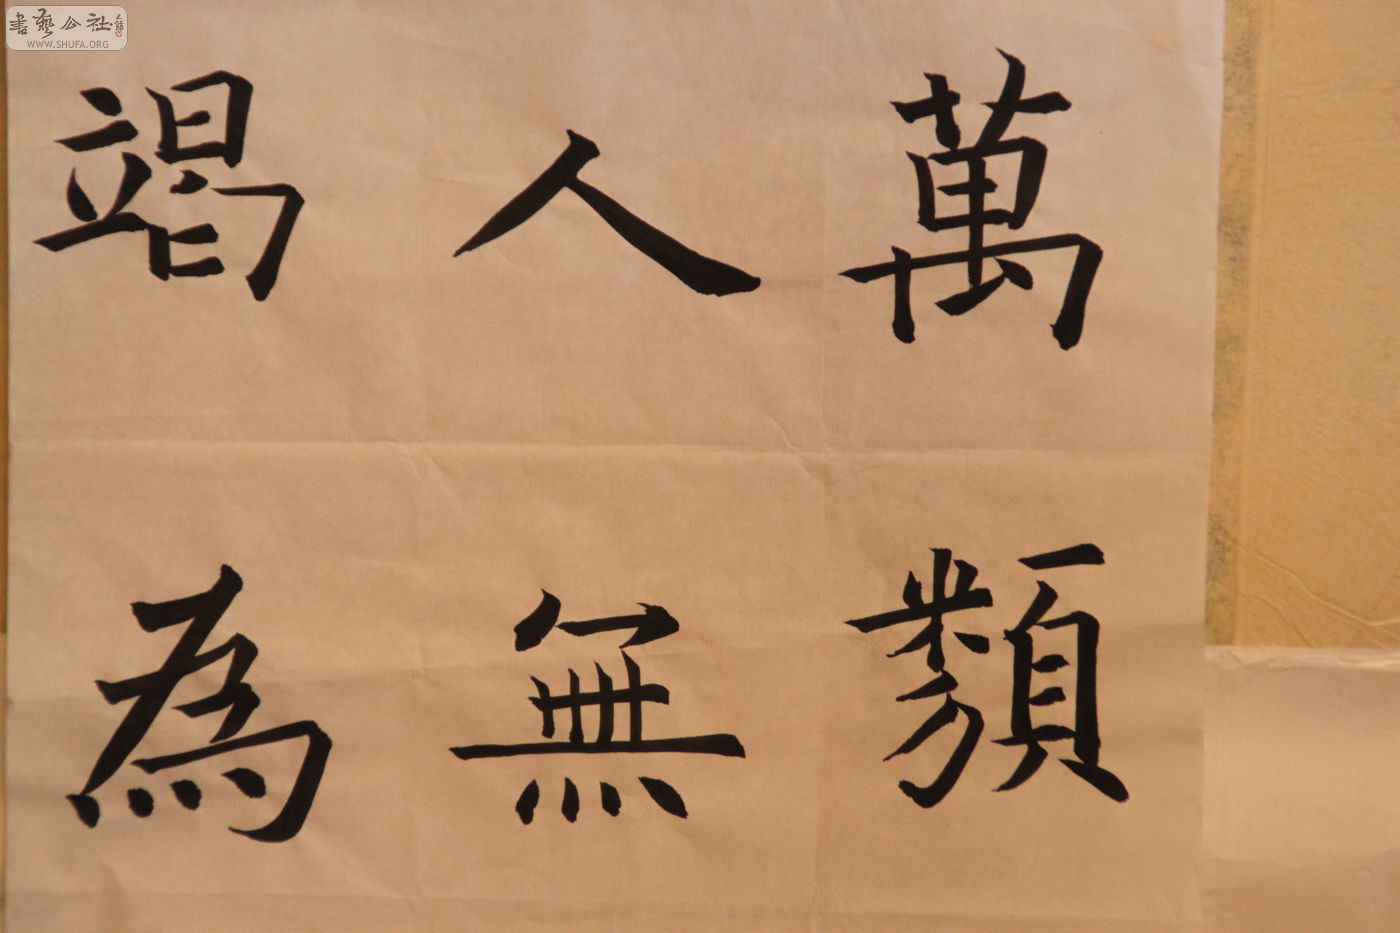 萬類
人無
竭為
書藝公社
WWW.SHUFA.ORG